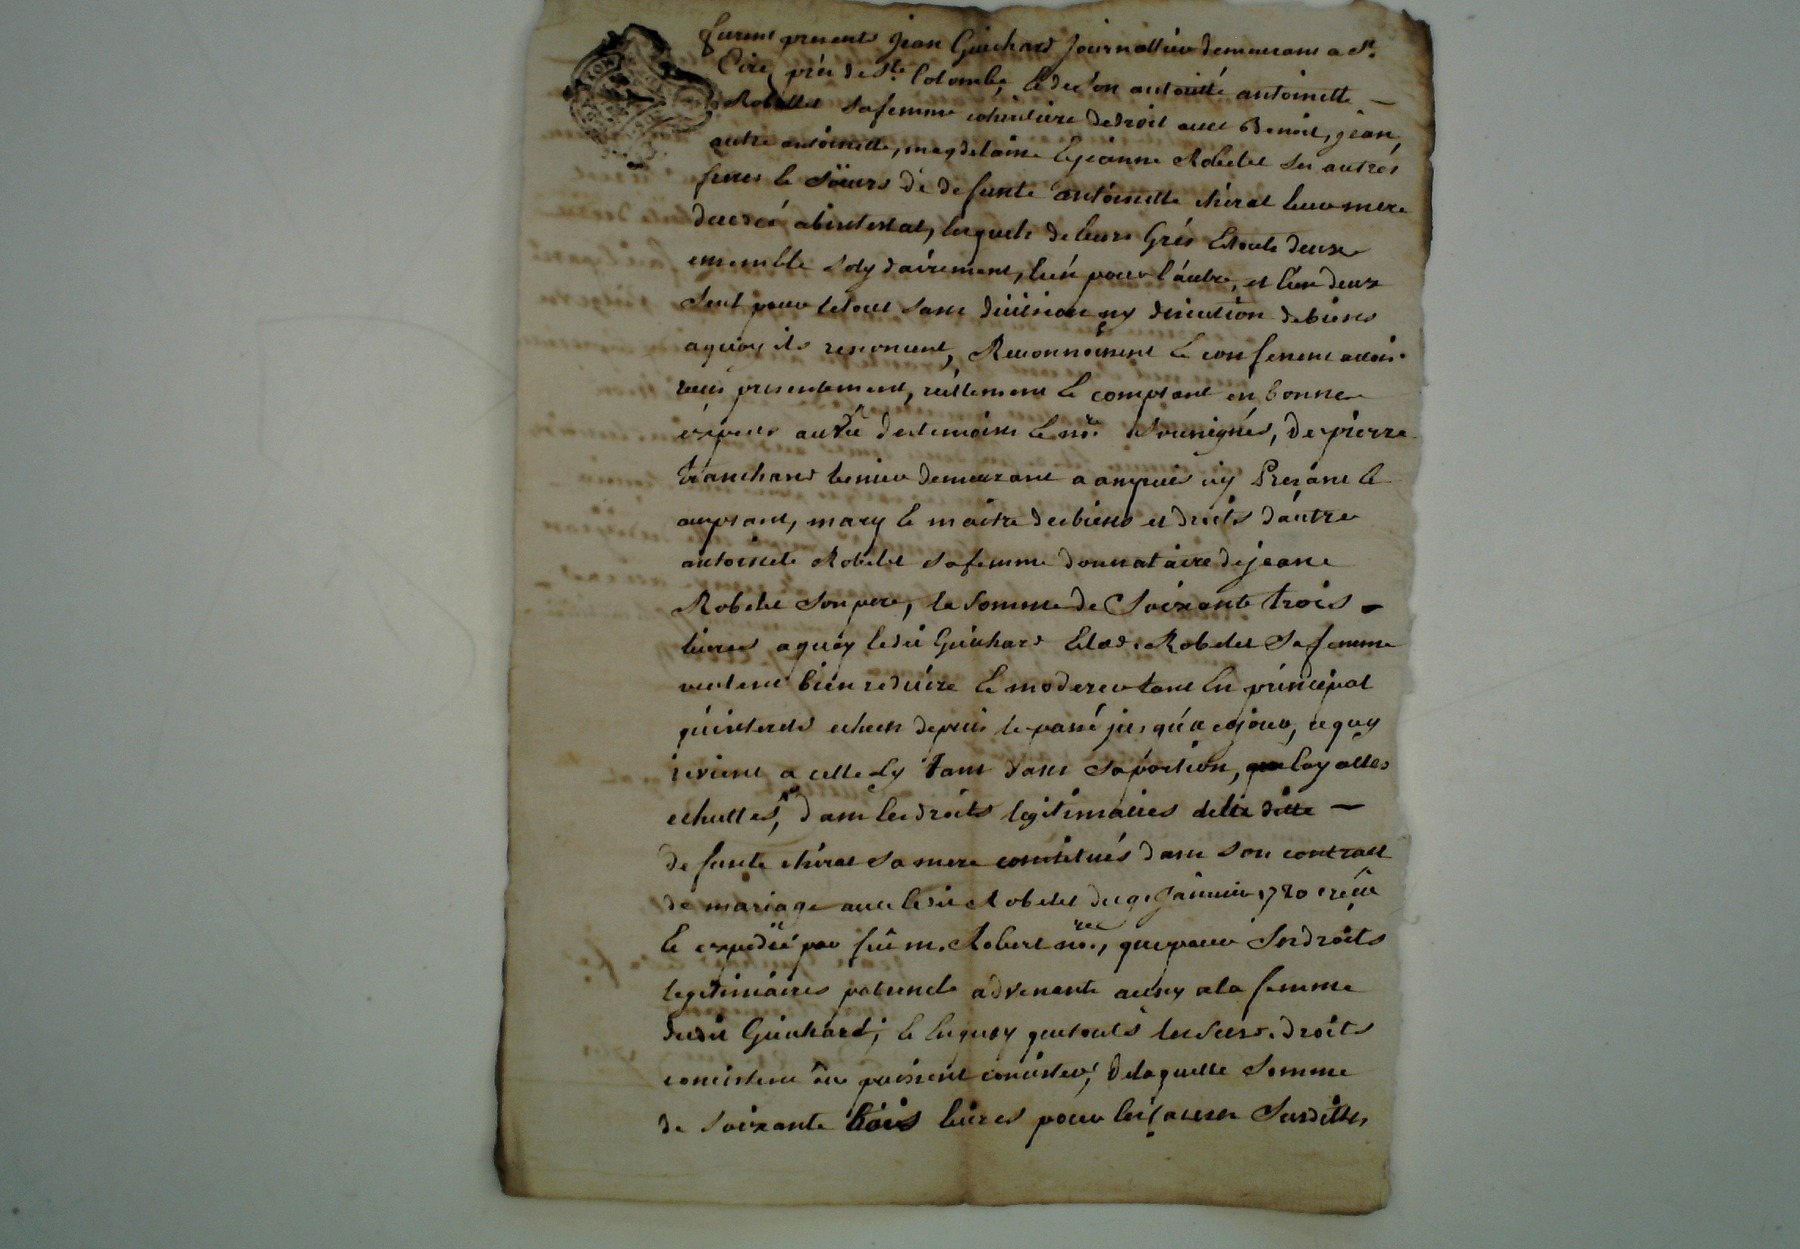 furent presents Jean Guichard Journallier demeurant a St.
Cire près de Ste. Colombe, & de son autorité antoinette
Robelet sa femme cohéritiere de droit avec Benoit, jean,
autre antoinette, magdelaine & jeanne Robelet ses autres
freres & Sœurs de defunte antoinette chirat leur mere
decedé abintestat, lesquels de leurs Grés & touts deux
ensemble solydairement, l'un pour l'autre, et l'un deux
seul pour le tout sans division ny discution de biens
a quoy ils renoncent, Reconnoissent & confessent avoir
reçu presentement, reéllement & comptant en bonnes
espéces au vû des temoins & nore. soussignés, de pierre
tranchant demeurant a ampuis icy Present &
acceptant, mary & maitre des biens et droits d'autre
antoinete Robelet sa femme donnataire de jean
Robelet son pere, la somme de Soixante trois
livres a quoy ledit Guichard & lad. Robelet sa femme
veulent bien reduire & moderer tant en principal
qu'interets echus depuis le passé jusqu'a ce jour, ce quy
revient a celle cy tant dans sa portion, que
echuttes, dans les droits legitimaires de la ditte
defunte chirat sa mere constitués dans son contract
de mariage avec ledit Robelet du 9e. Janvier 1720 reçu
& expedié par feû m. Robert nore., que pour ses droits
legitimaires paternels advenants a la femme
dudit Guichard; & en quoy que touts les susd. droits
consistent ou puissent consister, de laquelle somme
de soixante trois livres pour les causes susdittes,